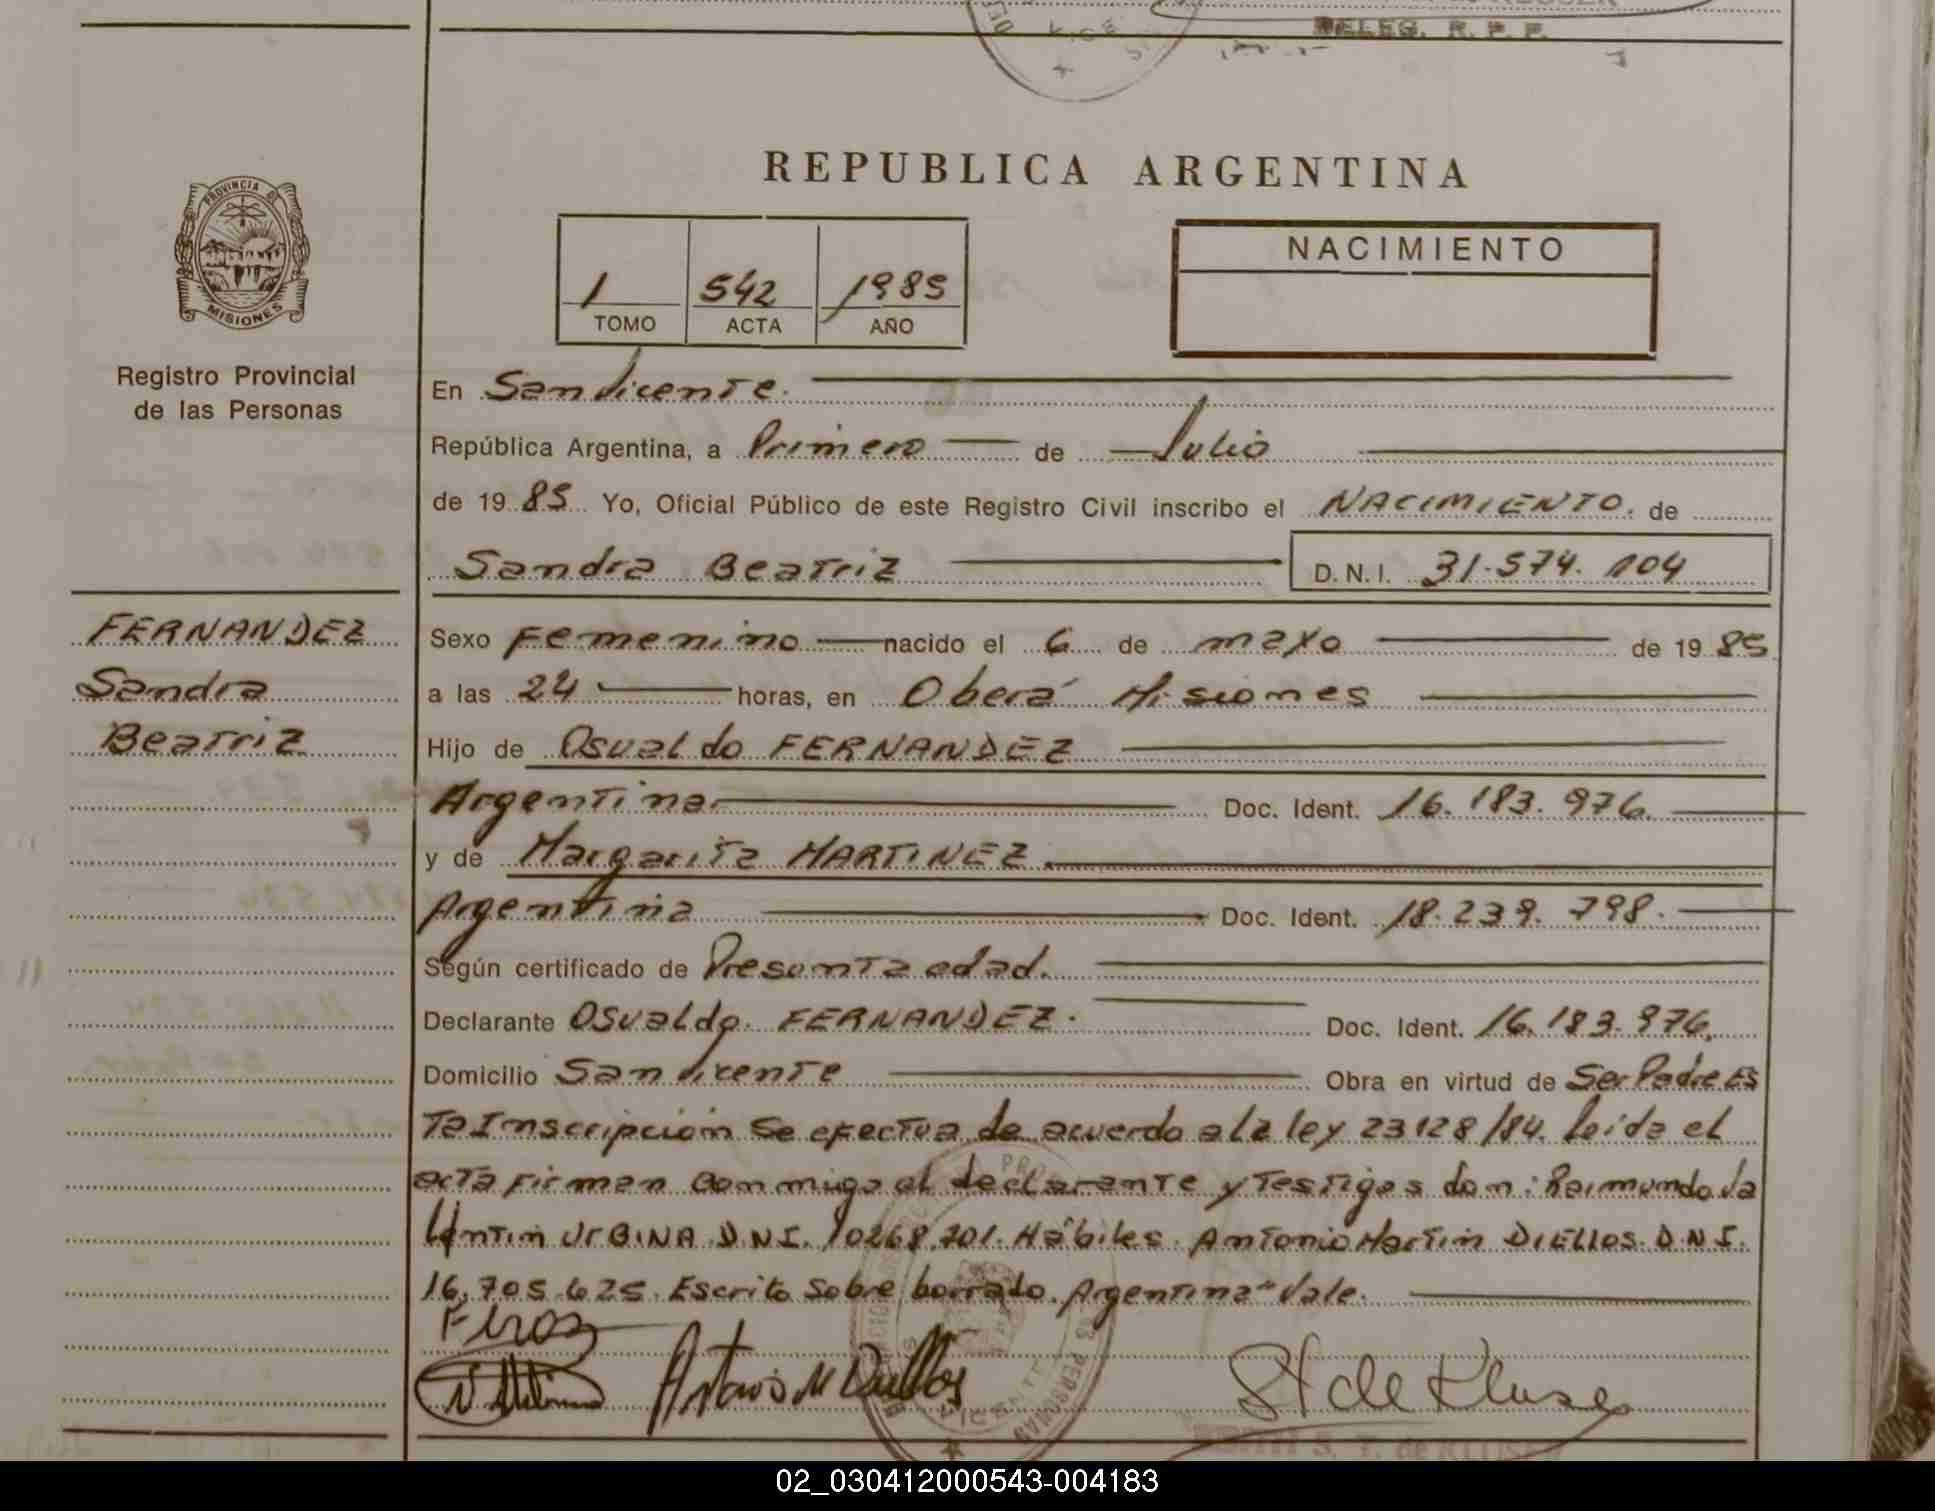 DELEG. R. P. P.
REPUBLICA ARGENTINA
PROVINCIA DE
MISIONES
Registro Provincial
de las Personas
1 542 1985
TOMO ACTA AÑO
NACIMIENTO
En San Vicente.
República Argentina, a Primero de Julio
de 1985 Yo, Oficial Público de este Registro Civil inscribo el NACIMIENTO. de
Sandra Beatriz D.N.I. 31.574.104
FERNANDEZ
Sandra
Beatriz
Sexo Femenino nacido el 6 de mayo de 1985
a las 24 horas, en Oberá Misiones
Hijo de Osvaldo FERNANDEZ
Argentina Doc. Ident. 16.183.976.
y de Margarita MARTINEZ.
Argentina Doc. Ident. 18.239.798.
Según certificado de Presunta edad.
Declarante Osvaldo FERNANDEZ. Doc. Ident. 16.183.976,
Domicilio San Vicente Obra en virtud de Ser Padre Es
ta Inscripción Se efectua de acuerdo a la ley 23128/84. Leida el
acta firman conmigo el declarante y testigos don: Raimundo Va
lentin UrBINA D.N.I. 10268.701. Hábiles. Antonio Martin DIELLOS. D.N.I.
16.705.625. Escrito Sobre borrado. Argentina" Vale.
02_030412000543-004183